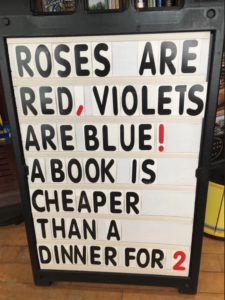 ROSES ARE
RED, VIOLETS
ARE BLUE!
A BOOK IS
CHEAPER
THAN A
DINNER FOR 2